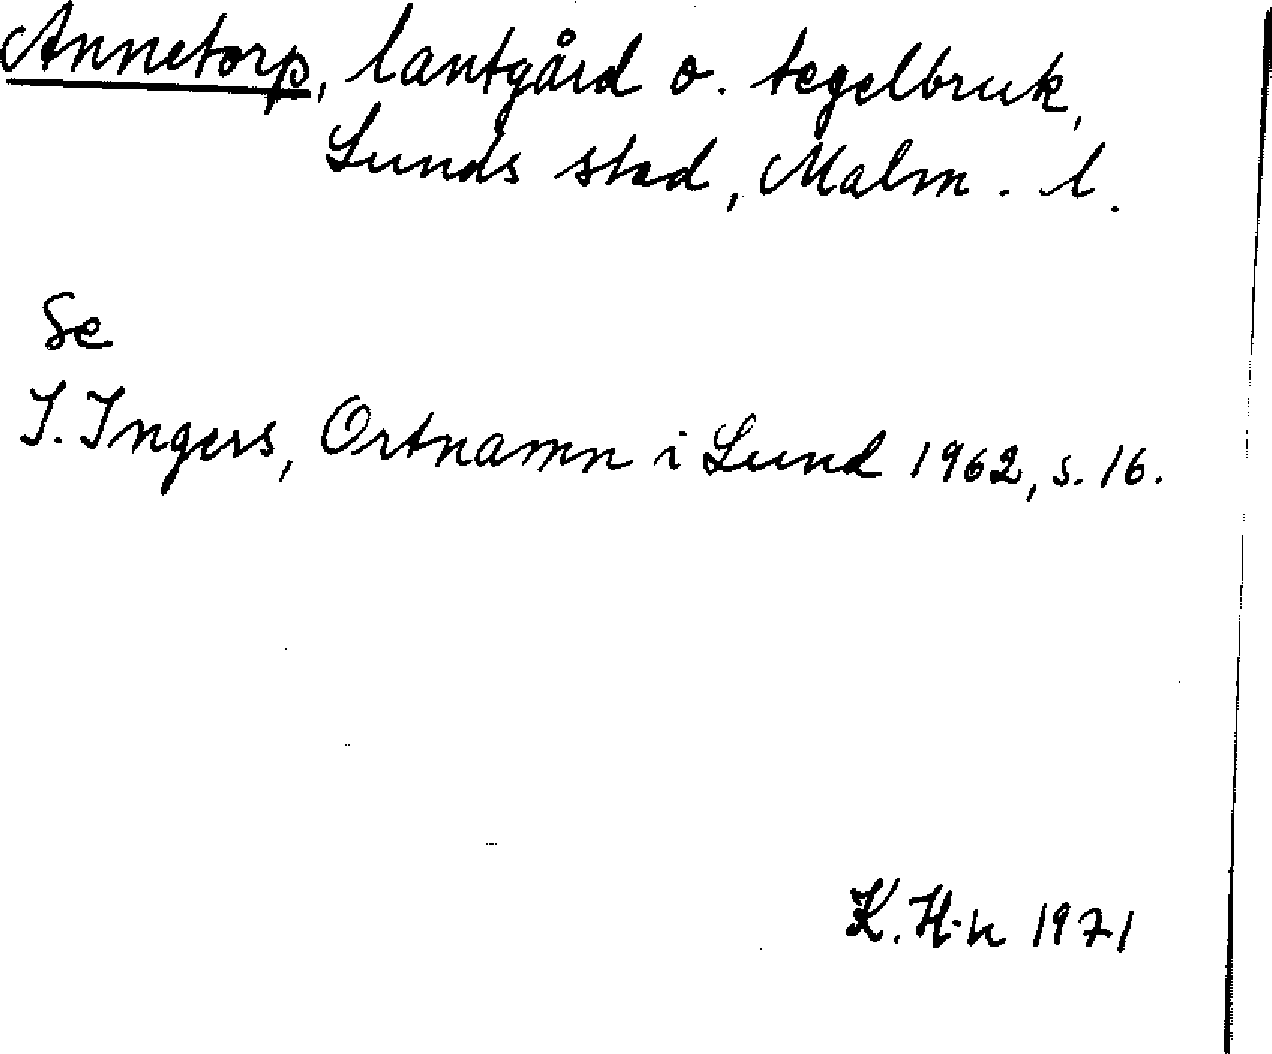 Annetorp, lantgård o. tegelbruk,
Lunds stad, Malm. l.
Se
I. Ingers, Ortnamn i Lund 1962, s. 16.
K. H-n 1971